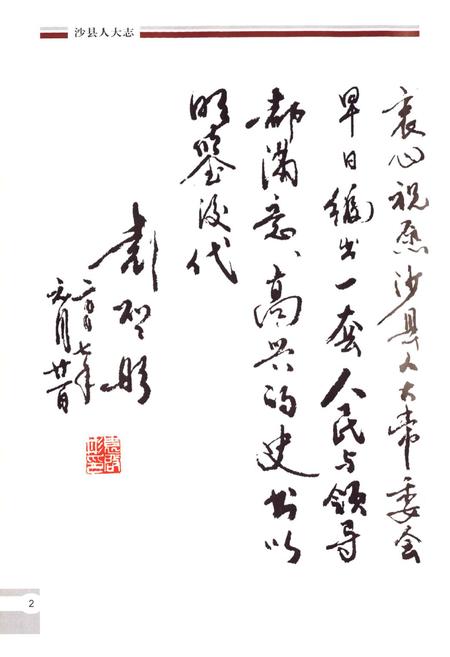 沙县人大志
衷心祝愿沙县人大常委会
早日编出一套人民与领导
都满意、高兴的史书以
明鉴后代
袁启彤
二〇〇七年
元月廿二日
2